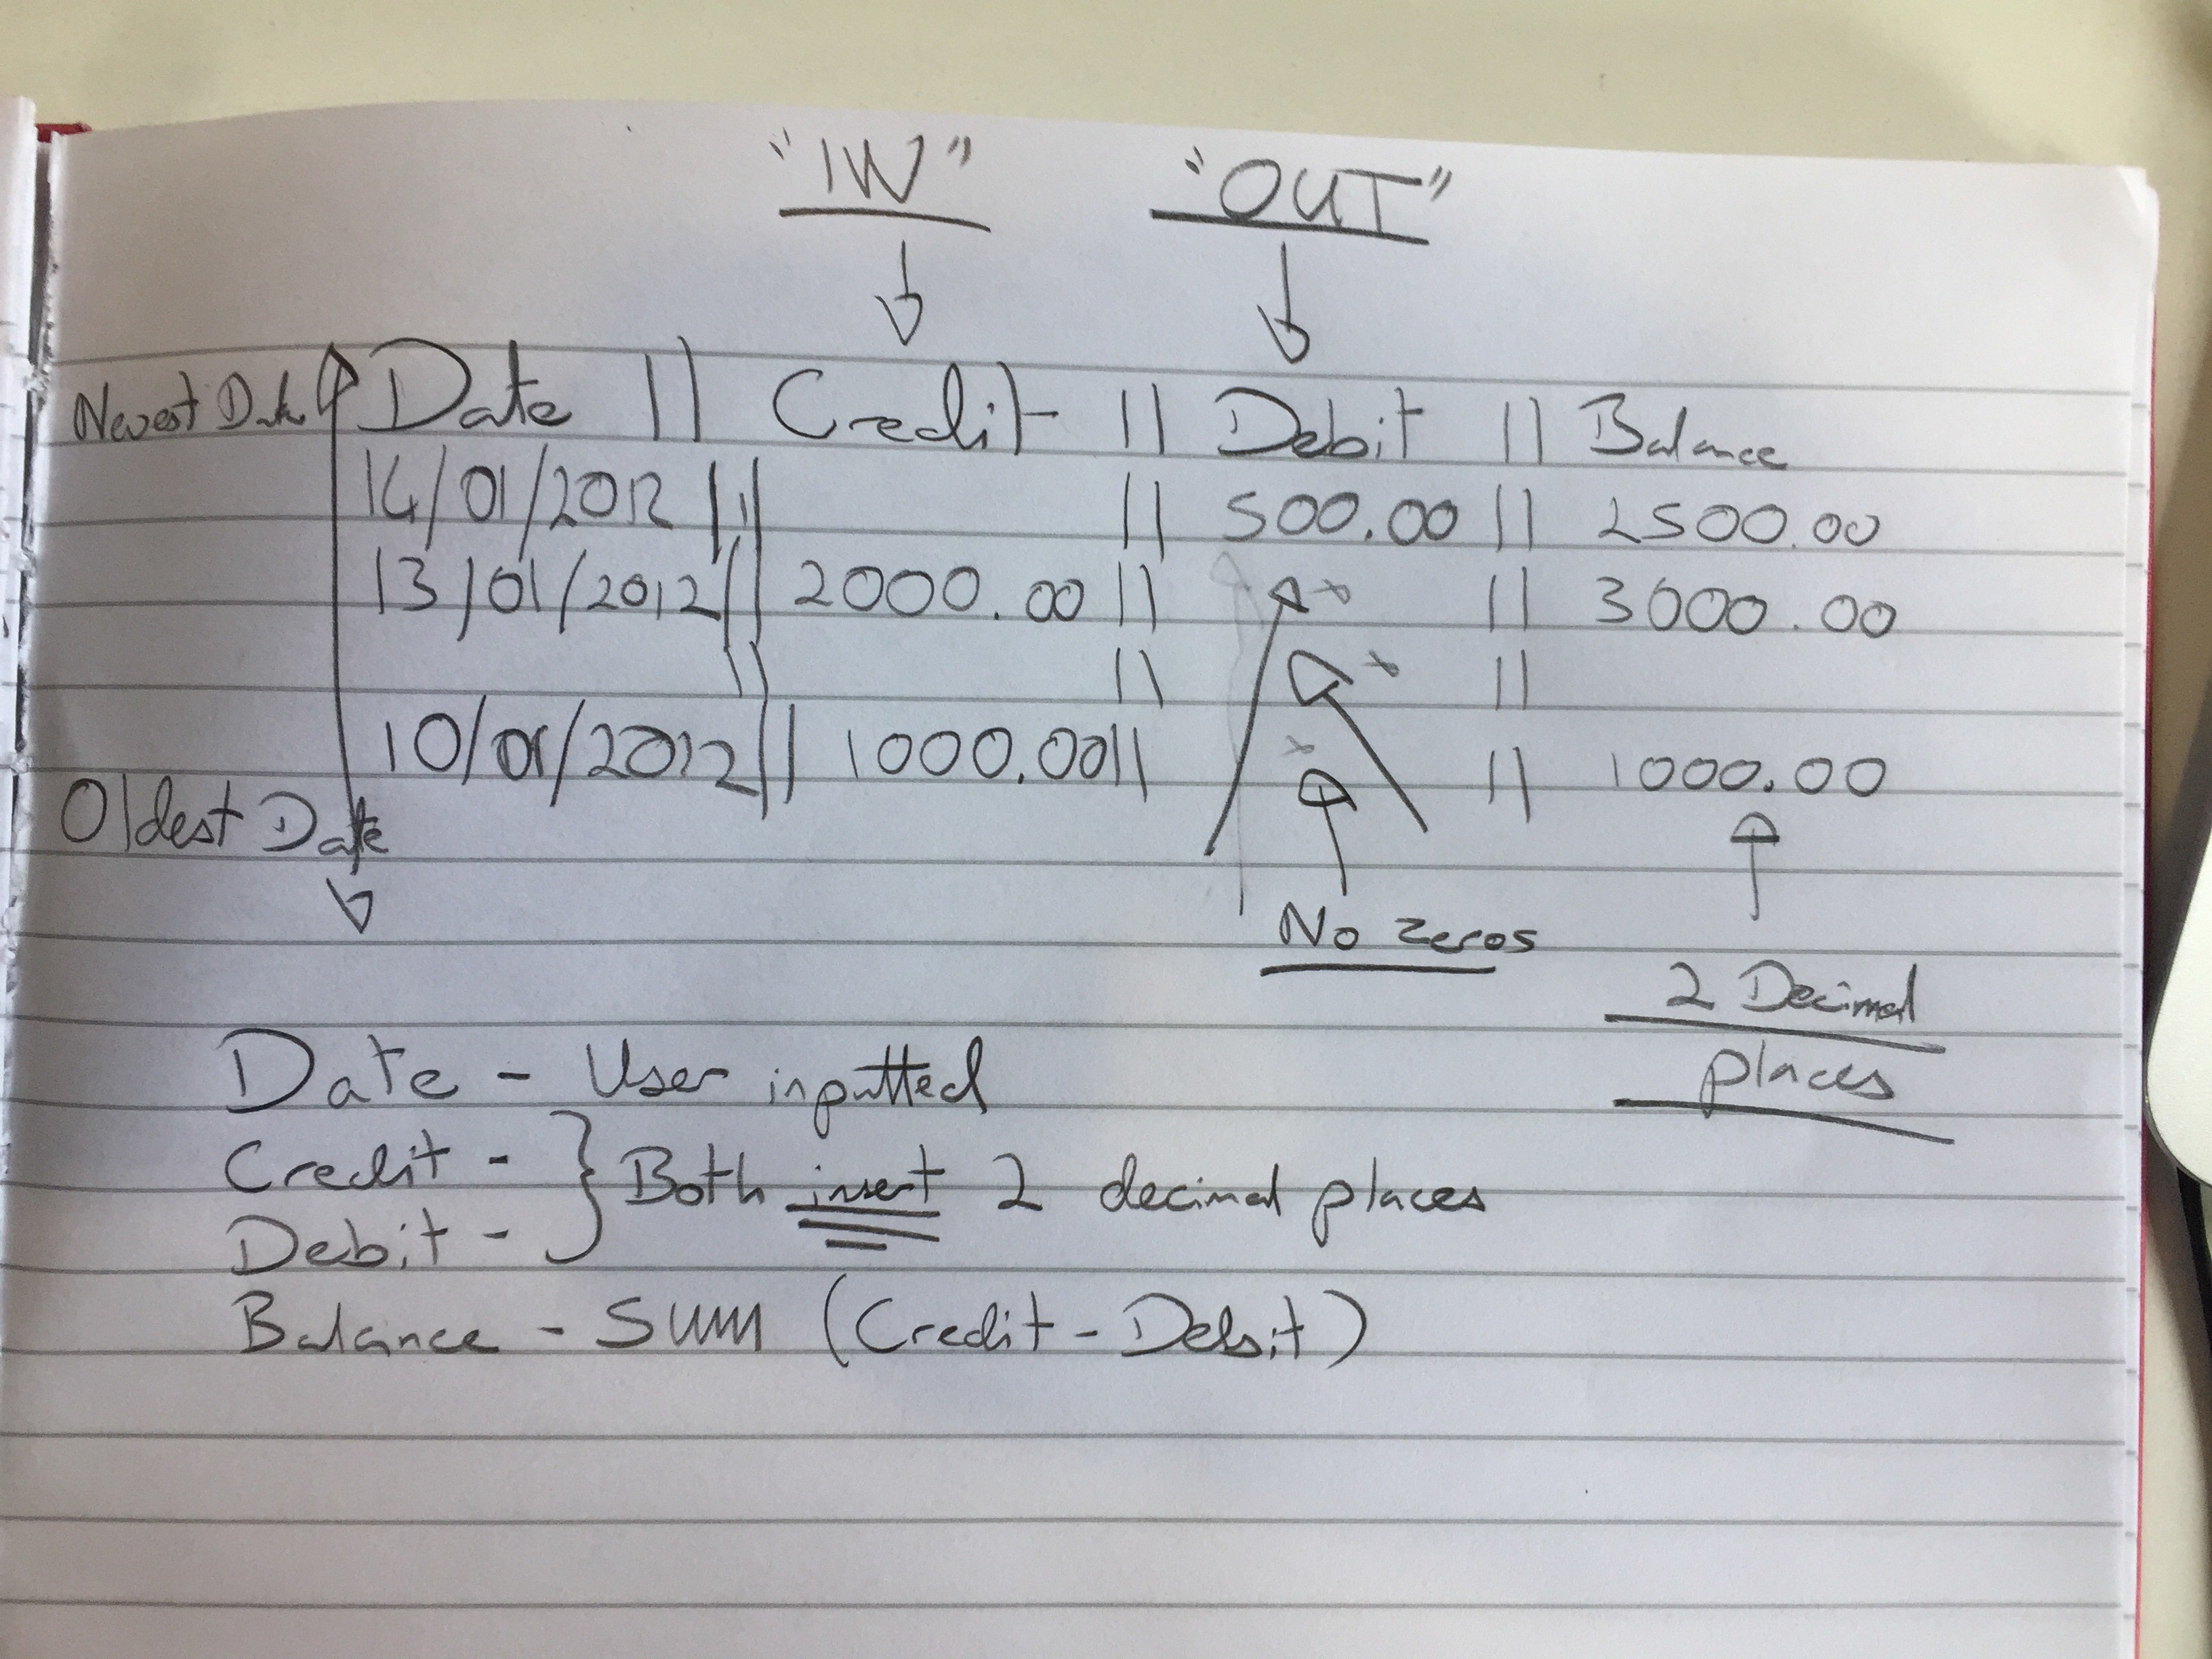 "IN" "OUT"
Newest Date Date || Credit || Debit || Balance
14/01/2012 || || 500.00 || 2500.00
13/01/2012 || 2000.00 || || 3000.00
|| || ||
10/01/2012 || 1000.00 || || 1000.00
Oldest Date
No zeros
2 Decimal
places
Date - User inputted
Credit - } Both insert 2 decimal places
Debit -
Balance - SUM (Credit - Debit)